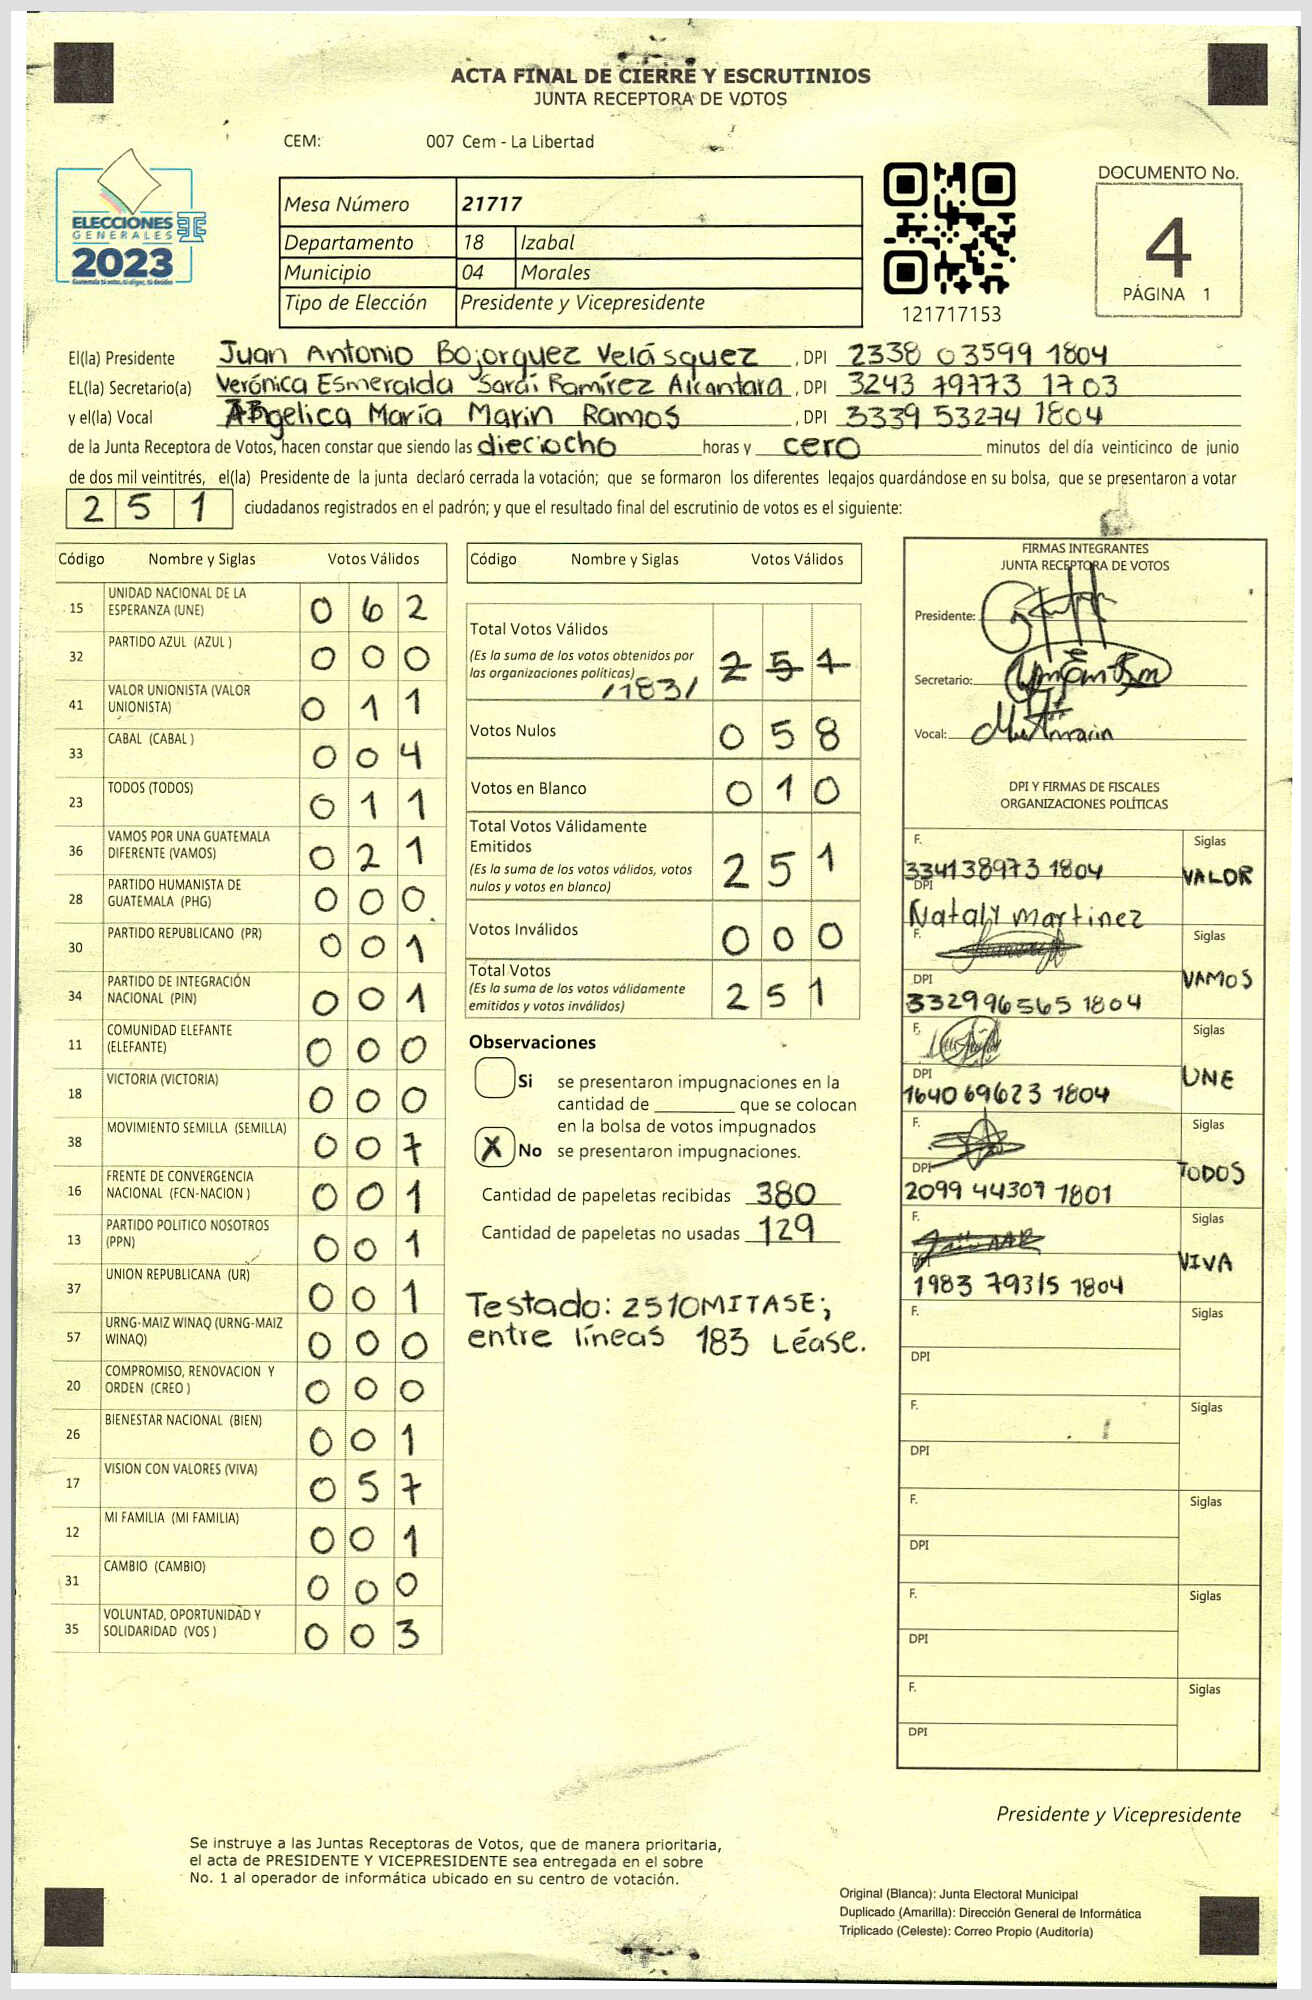 ACTA FINAL DE CIERRE Y ESCRUTINIOS
JUNTA RECEPTORA DE VOTOS
CEM: 007 Cem - La Libertad
ELECCIONES
GENERALES
2023
Mesa Número 21717
Departamento 18 Izabal
Municipio 04 Morales
Tipo de Elección Presidente y Vicepresidente
121717153
DOCUMENTO No.
4
PÁGINA 1
El(la) Presidente Juan Antonio Bojorquez Velásquez , DPI 2338 03599 1804
EL(la) Secretario(a) Verónica Esmeralda Saraí Ramírez Alcantara , DPI 3243 79773 1703
y el(la) Vocal Angelica María Marin Ramos , DPI 3339 53274 1804
de la Junta Receptora de Votos, hacen constar que siendo las dieciocho horas y cero minutos del día veinticinco de junio
de dos mil veintitrés, el(la) Presidente de la junta declaró cerrada la votación; que se formaron los diferentes legajos quardándose en su bolsa, que se presentaron a votar
251 ciudadanos registrados en el padrón; y que el resultado final del escrutinio de votos es el siguiente:
Código Nombre y Siglas Votos Válidos
15 UNIDAD NACIONAL DE LA
ESPERANZA (UNE) 062
32 PARTIDO AZUL (AZUL ) 000
41 VALOR UNIONISTA (VALOR
UNIONISTA) 011
33 CABAL (CABAL ) 004
23 TODOS (TODOS) 011
36 VAMOS POR UNA GUATEMALA
DIFERENTE (VAMOS) 021
28 PARTIDO HUMANISTA DE
GUATEMALA (PHG) 000
30 PARTIDO REPUBLICANO (PR) 001
34 PARTIDO DE INTEGRACIÓN
NACIONAL (PIN) 001
11 COMUNIDAD ELEFANTE
(ELEFANTE) 000
18 VICTORIA (VICTORIA) 000
38 MOVIMIENTO SEMILLA (SEMILLA) 007
16 FRENTE DE CONVERGENCIA
NACIONAL (FCN-NACION ) 001
13 PARTIDO POLITICO NOSOTROS
(PPN) 001
37 UNION REPUBLICANA (UR) 001
57 URNG-MAIZ WINAQ (URNG-MAIZ
WINAQ) 000
20 COMPROMISO, RENOVACION Y
ORDEN (CREO ) 000
26 BIENESTAR NACIONAL (BIEN) 001
17 VISION CON VALORES (VIVA) 057
12 MI FAMILIA (MI FAMILIA) 001
31 CAMBIO (CAMBIO) 000
35 VOLUNTAD, OPORTUNIDAD Y
SOLIDARIDAD (VOS ) 003
Código Nombre y Siglas Votos Válidos
Total Votos Válidos
(Es la suma de los votos obtenidos por
las organizaciones políticas) 251
/183/
Votos Nulos 058
Votos en Blanco 010
Total Votos Válidamente
Emitidos
(Es la suma de los votos válidos, votos
nulos y votos en blanco) 251
Votos Inválidos 000
Total Votos
(Es la suma de los votos válidamente
emitidos y votos inválidos) 251
Observaciones
Si se presentaron impugnaciones en la
cantidad de ________ que se colocan
en la bolsa de votos impugnados
X No se presentaron impugnaciones.
Cantidad de papeletas recibidas 380
Cantidad de papeletas no usadas 129
Testado: 251OMITASE;
entre líneas 183 Léase.
FIRMAS INTEGRANTES
JUNTA RECEPTORA DE VOTOS
Presidente:
Secretario:
Vocal:
DPI Y FIRMAS DE FISCALES
ORGANIZACIONES POLÍTICAS
F. Siglas
334138973 1804 VALOR
DPI
Nataly Martinez
F. Siglas
DPI VAMOS
332996565 1804
F. Siglas
DPI UNE
1640 69623 1804
F. Siglas
DPI TODOS
2099 44307 1801
F. Siglas
DPI VIVA
1983 79315 1804
F. Siglas
DPI
F. Siglas
DPI
F. Siglas
DPI
F. Siglas
DPI
F. Siglas
DPI
Presidente y Vicepresidente
Se instruye a las Juntas Receptoras de Votos, que de manera prioritaria,
el acta de PRESIDENTE Y VICEPRESIDENTE sea entregada en el sobre
No. 1 al operador de informática ubicado en su centro de votación.
Original (Blanca): Junta Electoral Municipal
Duplicado (Amarilla): Dirección General de Informática
Triplicado (Celeste): Correo Propio (Auditoría)